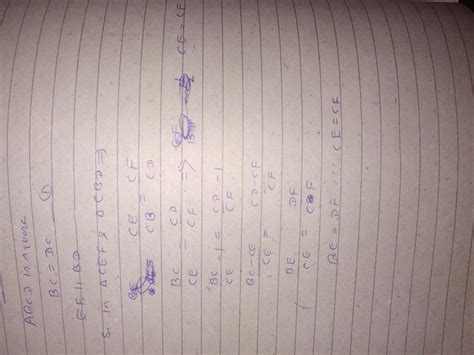 ABCD is square
BC = DC — ①
EF || BD
So in △CEF & △CBD ⇒
CE/CB = CF/CD
BC/CE = CD/CF ⇒ CE = CF
BC/CE - 1 = CD/CF - 1
BC-CE/CE = CD-CF/CF
BE/CE = DF/CF
BE = DF ∵ CE = CF